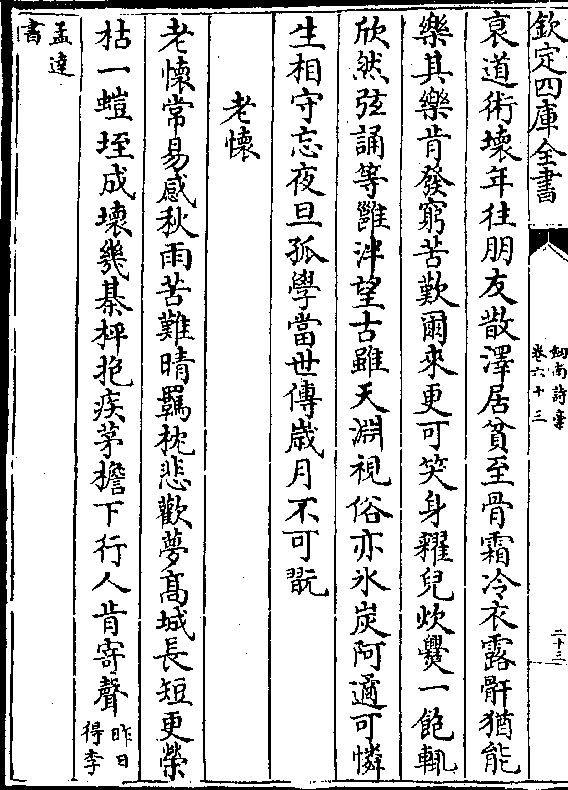 欽定四庫全書
劔南詩稾
卷六十三
二十三
哀道術壊年往朋友散澤居貧至骨霜冷衣露骭猶能
樂其樂肯發窮苦歎爾來更可笑身糴兒炊爨一飽輒
欣然弦誦等雝泮望古雖天淵視俗亦氷炭阿邁可憐
生相守忘夜旦孤學當世傳歲月不可翫
老懐
老懐常易感秋雨苦難晴羈枕悲歡夢髙城長短更榮
枯一螘垤成壊幾棊枰抱疾茅檐下行人肯寄聲昨日
得李
孟逹
書